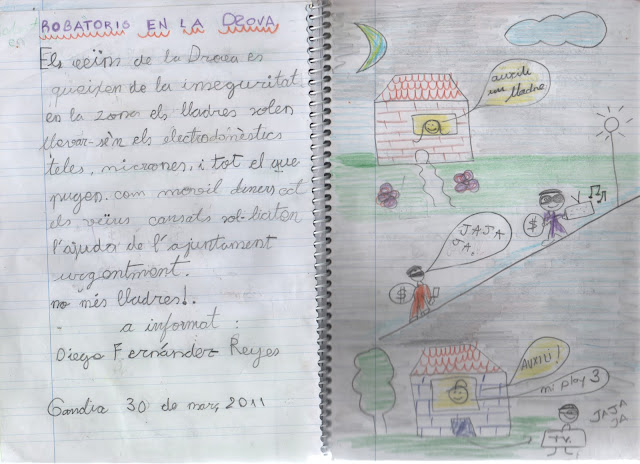 ROBATORIS EN LA DROVA
Els veïns de la Drova es
queixen de la inseguritat
en la zona els lladres solen
llevar-se'n els electrodomèstics
teles, microones, i tot el que
pugen. com movsil diners oct
els veïns cansats sol·liciten
l'ajuda de l'ajuntament
urgentment.
no més lladres!.
a informat :
Diego Fernández Reyes
Gandia 30 de març 2011
auxili
un lladre
$
JAJA
JA.
$
AUXILI!
mi play 3
JAJA
JA
T.V.